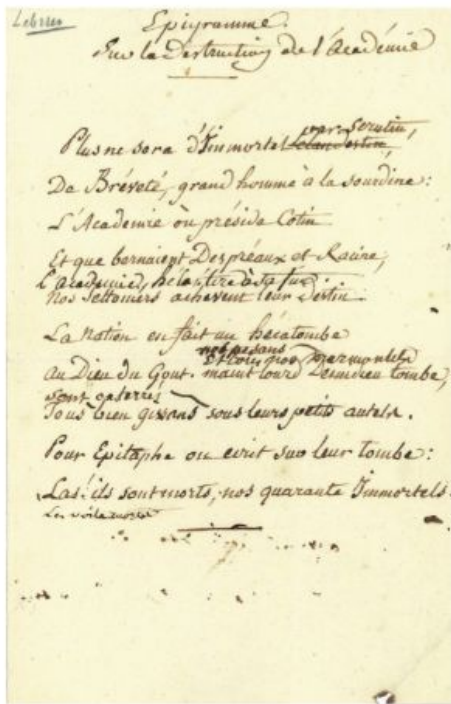 Lebrun
Epigramme.
Sur la Destruction de l'Académie
par Scrutin,
Plus ne sera d'Immortel clandestin,
De Brévété, grand homme à la sourdine :
L'Academie où préside Cotin
Et que bernaient Despréaux et Racine,
L'academie, hélas! tire à sa fin.
Nos achevent leur Destin.
La Nation en fait un hécatombe
nos pesans
et ton gros Marmontel
au Dieu du Gout. maint lourd Demidieu tombe,
sont
Tous bien gissans sous leurs petits autels.
Pour Epitaphe on ecrit sur leur tombe :
Las! ils sont morts, nos quarante Immortels.
Les voila morts